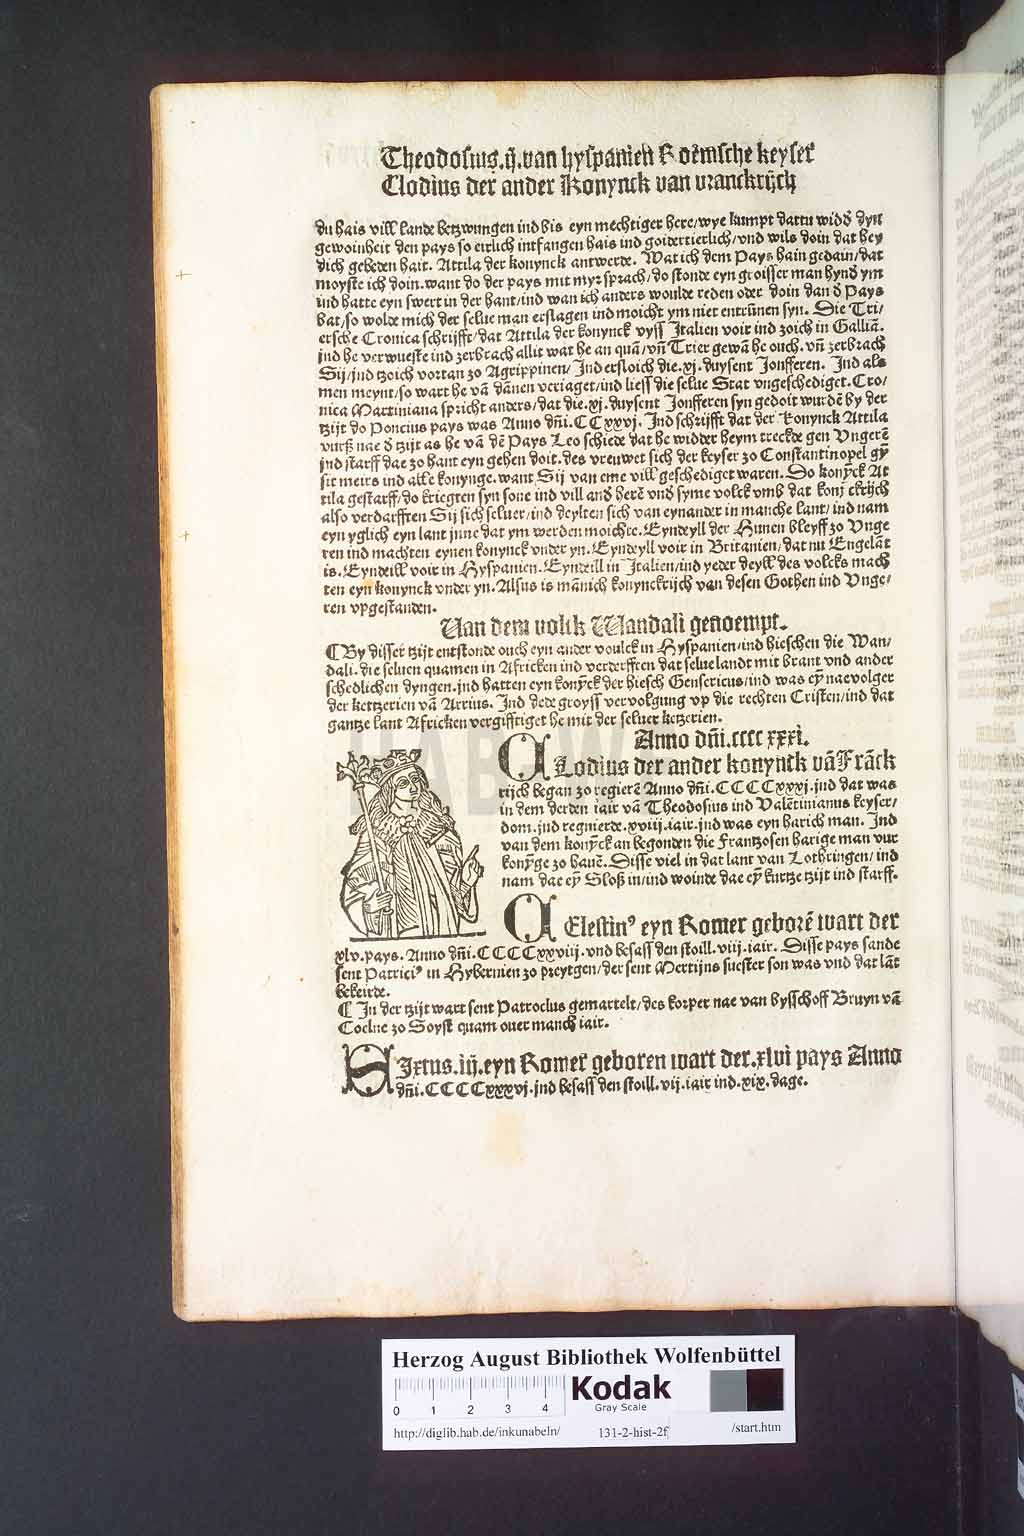 Theodosius.ij.van hyspanien Roemsche keyser
Clodius der ander Konynck van vranckrijch
du hais vill lande betzwungen ind bis eyn mechtiger here/wye kumpt dattu widđ dyn
gewoinheit den pays so eirlich intfangen hais ind goidertierlich/vnd wils doin dat hey
dich gebeden hait. Attila der konynck antwerde. Wat ich dem Pays hain gedain/dat
moyste ich doin.want do der pays mit myr sprach/do stonde eyn groisser man hynđ ym
ind hatte eyn swert in der hant/ind wan ich anders woulde reden oder doin dan đ Pays
bat/so wolde mich der selue man erslagen ind moicht ym niet entrūnen syn. Die Tri/
ersche Cronica schrijfft/dat Attila der konynck vyss Italien voir ind zoich in Galliā.
jnd he verwueste ind zerbrach allit wat he an quā/vñ Trier gewā he ouch. vñ zerbrach
Sij/ind tzoich vortan zo Agrippinen/ Ind ersloich die.xj.duysent Jonfferen. Ind als
men meynt/so wart he vā dānen veriaget/ind liess die selue Stat vngeschediget. Cro/
nica Martiniana spricht anders/dat die.xj.duysent Jonfferen syn gedoit wurdē by der
tzijt do Poncius pays was Anno dñi.CCxxvj. Ind schrijfft dat der Konynck Attila
vurß nae đ tzijt as he vā dē Pays Leo schiede dat he widder heym treckde gen Vngerē
jnd starff dae zo hant eyn gehen doit.des vreuwet sich der keyser zo Constantinopel gȳ
sit meirs ind alle konynge.want Sij van eme vill geschediget waren. Do konȳck At
tila gestarff/do kriegten syn sone ind vill anđ herē vnđ syme volck vmb dat konyckrijch
also verdarfften Sij sich seluer/ind deylten sich van eynander in manche lant/ind nam
eyn yglich eyn lant jnne dat ym werden moichte. Eyndeyll der Hunen bleyff zo Vnge
ren ind machten eynen konynck vnder yn. Eyndeyll voir in Britanien/dat nu Engelāt
is. Eyndeill voir in Hyspanien. Eyndeill in Italien/ind yeder deyll des volcks mach
ten eyn konynck vnder yn. Alsus is mānich konynckrijch van desen Gothen ind Vnge/
ren vpgestanden.
Uan dem volck Wandali genoempt.
¶ By disser tzijt entstonde ouch eyn ander voulck in Hyspanien/ind hieschen die Wan/
dali. die seluen quamen in Africken ind verderfften dat selue landt mit brant vnd ander
schedlichen dyngen.jnd hatten eyn konȳck der hiesch Gensericus/ind was eȳ naevolger
der kettzerien vā Arrius. Ind dede groyss vervolgung vp die rechten Cristen/ind dat
gantze lant Africken vergifftiget he mit der seluer ketzerien.
Anno dñi.cccc xxxi.
CLodius der ander konynck vā Frāck
rijch began zo regierē Anno dñi.CCCCxxxj.jnd dat was
in dem derden iair vā Theodosius ind Valētinianus keyser/
dom.jnd regnierde.xviij.iair.jnd was eyn harich man. Ind
van dem konȳck an begonden die Frantzosen harige man vur
konȳge zo hauē. Disse viel in dat lant van Lothringen/ ind
nam dae eȳ Sloß in/ind woinde dae eȳ kurtze tzijt ind starff.
CElestinꝰ eyn Romer geborē wart der
xlv.pays. Anno dñi.CCCCxxviij.vnd besass den stoill.viij.iair. Disse pays sande
sent Patriciꝰ in Hybernien zo preytgen/der sent Mertijns suester son was vnd dat lāt
bekeirde.
¶ In der tzijt wart sent Patroclus gemartelt/des korper nae van bysschoff Bruyn vā
Coelne zo Soyst quam ouer manch iair.
SIxtus.iij.eyn Romer geboren wart der.xlvi pays Anno
dñi.CCCCxxxvj.jnd besass den stoill.vij.iair ind.xix.dage.
HAB WF
Herzog August Bibliothek Wolfenbüttel
0 1 2 3 4
Kodak
Gray Scale
http://diglib.hab.de/inkunabeln/ 131-2-hist-2f /start.htm